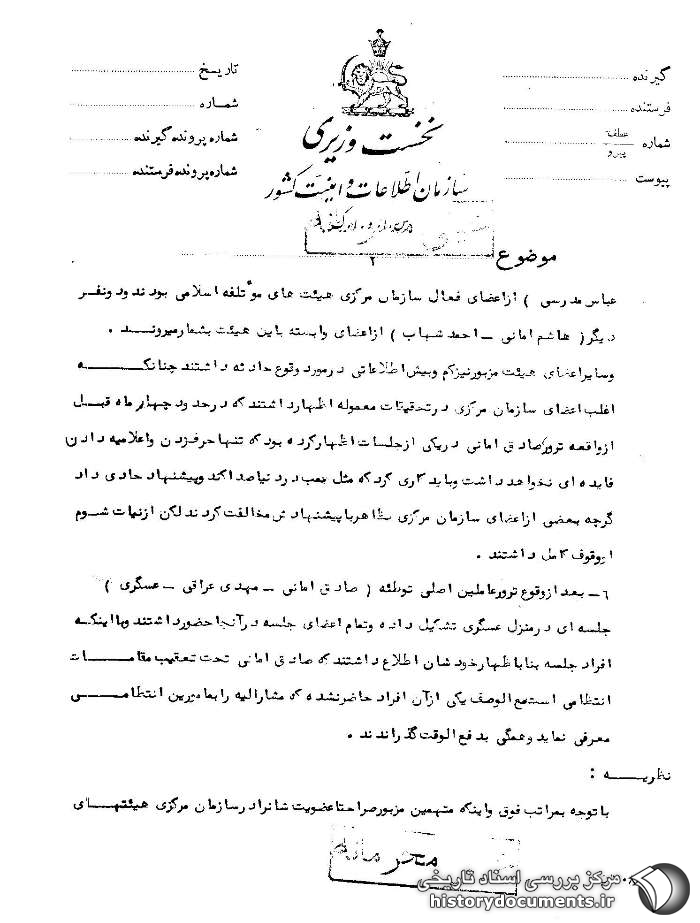 گیرنده
فرستنده
شماره عطف پیرو
پیوست
تاریخ
شماره
شماره پرونده گیرنده
شماره پرونده فرستنده
نخست وزیری
سازمان اطلاعات و امنیت کشور
موضوع
۲
عباس مدرسی ) از اعضای فعال سازمان مرکزی هیئت های موتلفه اسلامی بودند و دونفر
دیگر ( هاشم امانی - احمد شهاب ) از اعضای وابسته باین هیئت بشمار میروند .
وسایر اعضای هیئت مزبور نیز کم وبیش اطلاعاتی در مورد وقوع حادثه داشتند چنانکه
اغلب اعضای سازمان مرکزی در تحقیقات معموله اظهار داشتند که در حدود چهار ماه قبل
از واقعه ترور صادق امانی در یکی از جلسات اظهار کرده بود که تنها حرف زدن واعلامیه دادن
فایده ای نخواهد داشت وباید کاری کرد که مثل بمب در دنیا صدا کند وپیشنهاد حادی داد
گرچه بعضی از اعضای سازمان مرکزی ظاهر با پیشنهادش مخالفت کردند لکن از نیات شوم
او وقوف کامل داشتند .
٦- بعد از وقوع ترور عاملین اصلی توطئه ( صادق امانی - مهدی عراقی - عسگری )
جلسه ای در منزل عسگری تشکیل داده وتمام اعضای جلسه در آنجا حضور داشتند وبا اینکه
افراد جلسه بنا باظهار خودشان اطلاع داشتند که صادق امانی تحت تعقیب مقامات
انتظامی است مع الوصف یکی از آن افراد حاضر نشده که مشارالیه را بمامورین انتظامی
معرفی نماید وهمگی بدفع الوقت گذراندند .
نظریه :
با توجه بمراتب فوق واینکه متهمین مزبور صراحتا عضویت شانرا در سازمان مرکزی هیئتهای
مرکز بررسی اسناد تاریخی
historydocuments.ir